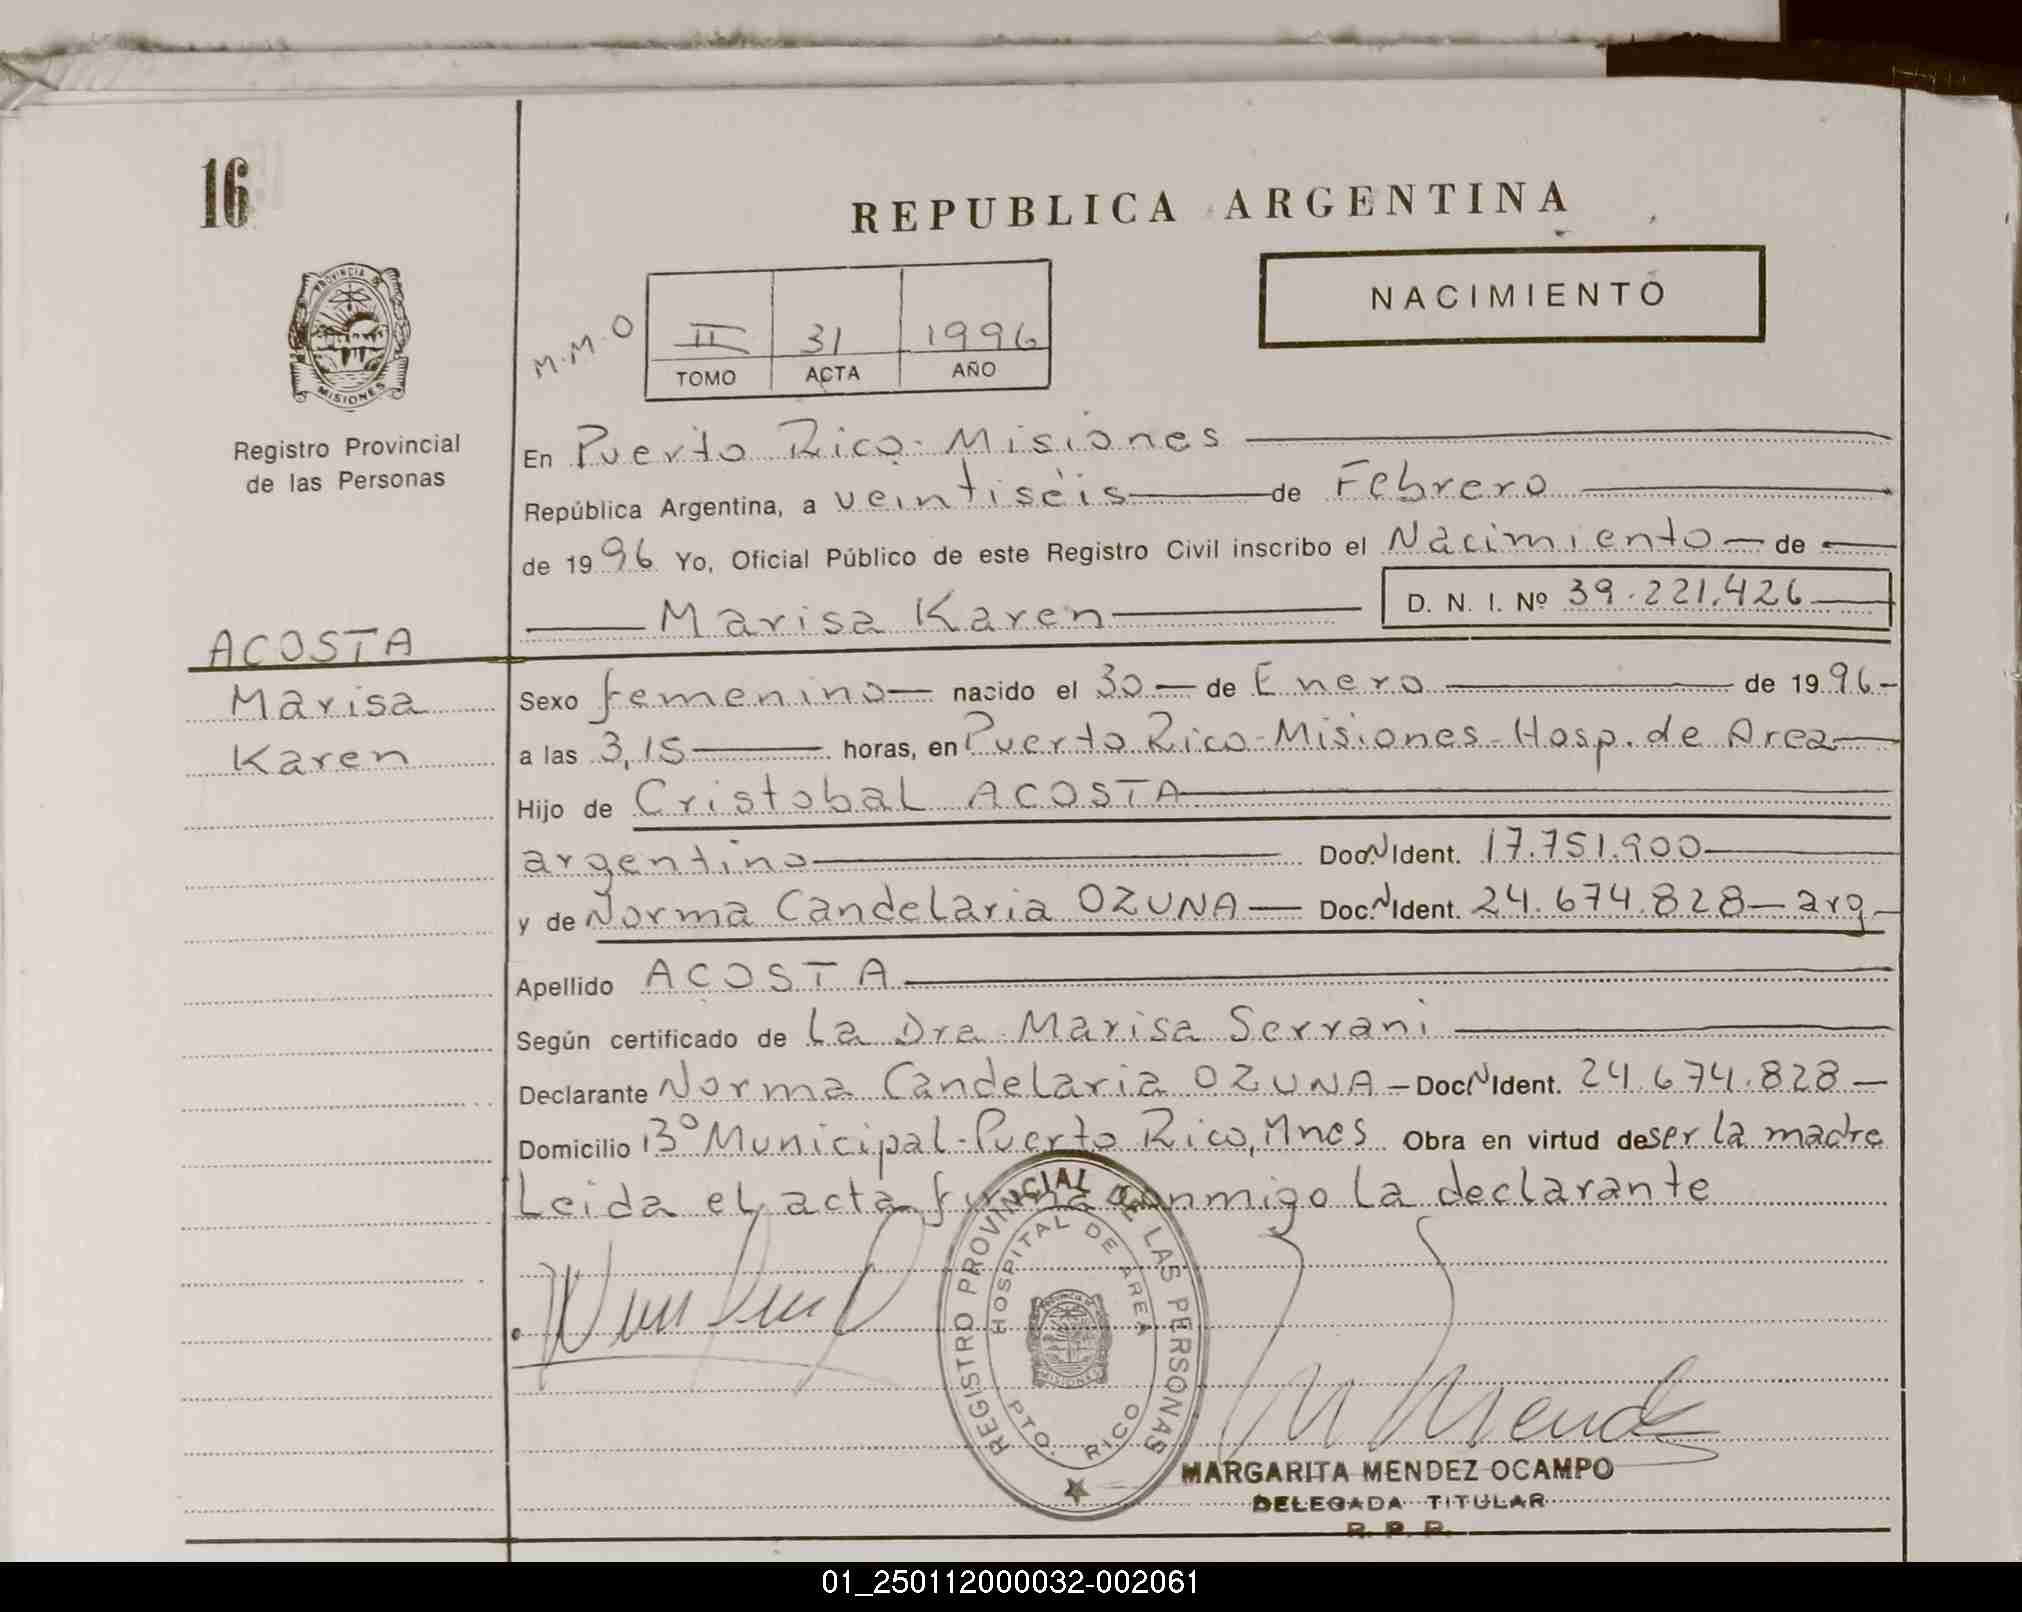 16
REPUBLICA ARGENTINA
NACIMIENTO
M.M.O
II 31 1996
TOMO ACTA AÑO
PROVINCIA DE MISIONES
Registro Provincial
de las Personas
En Puerto Rico - Misiones
República Argentina, a veintiséis de Febrero
de 1996 Yo, Oficial Público de este Registro Civil inscribo el Nacimiento de
Marisa Karen D. N. I. Nº 39.221.426
ACOSTA
Marisa
Karen
Sexo femenino nacido el 30 de Enero de 1996
a las 3,15 horas, en Puerto Rico - Misiones - Hosp. de Area
Hijo de Cristobal ACOSTA
argentino Doc. N Ident. 17.751.900
y de Norma Candelaria OZUNA Doc. N Ident. 24.674.828 - arg
Apellido ACOSTA
Según certificado de la Dra. Marisa Serrani
Declarante Norma Candelaria OZUNA - Doc. N Ident. 24.674.828
Domicilio Bº Municipal - Puerto Rico, Mnes Obra en virtud de ser la madre
Leida el acta firma conmigo la declarante
REGISTRO PROVINCIAL DE LAS PERSONAS
HOSPITAL DE AREA
PTO. RICO
MISIONES
M Mendez
MARGARITA MENDEZ OCAMPO
DELEGADA TITULAR
R. P. P.
01_250112000032-002061